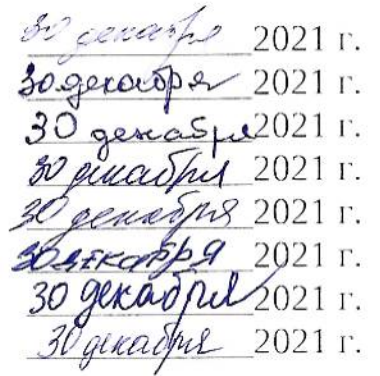 30 декабря 2021 г.
30 декабря 2021 г.
30 декабря 2021 г.
30 декабря 2021 г.
30 декабря 2021 г.
30 декабря 2021 г.
30 декабря 2021 г.
30 декабря 2021 г.